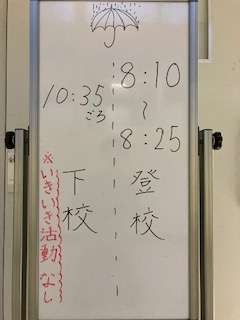 8:10
〜
8:25
登校
10:35
ごろ
下校
※いきいき活動 なし